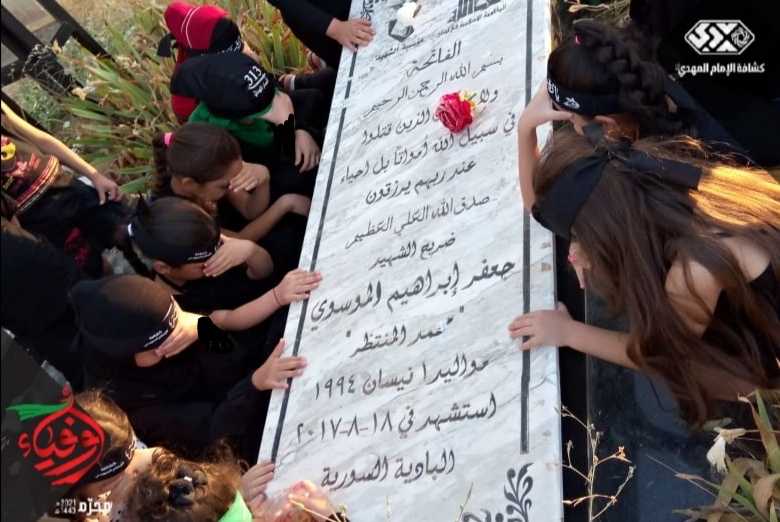 كشافة الإمام المهدي
الفاتحة
بسم الله الرحمن الرحيم
الذين قتلوا
في سبيل الله أمواتا بل احياء
عند ربهم يرزقون
صدق الله العلي العظيم
ضريح الشهيد
جعفر إبراهيم الموسوي
المنتظر"
مواليد ١ نيسان ١٩٩٤
استشهد في ١٨-٨-٢٠١٧
البادية السورية
313
أوفياء
محرّم
2021